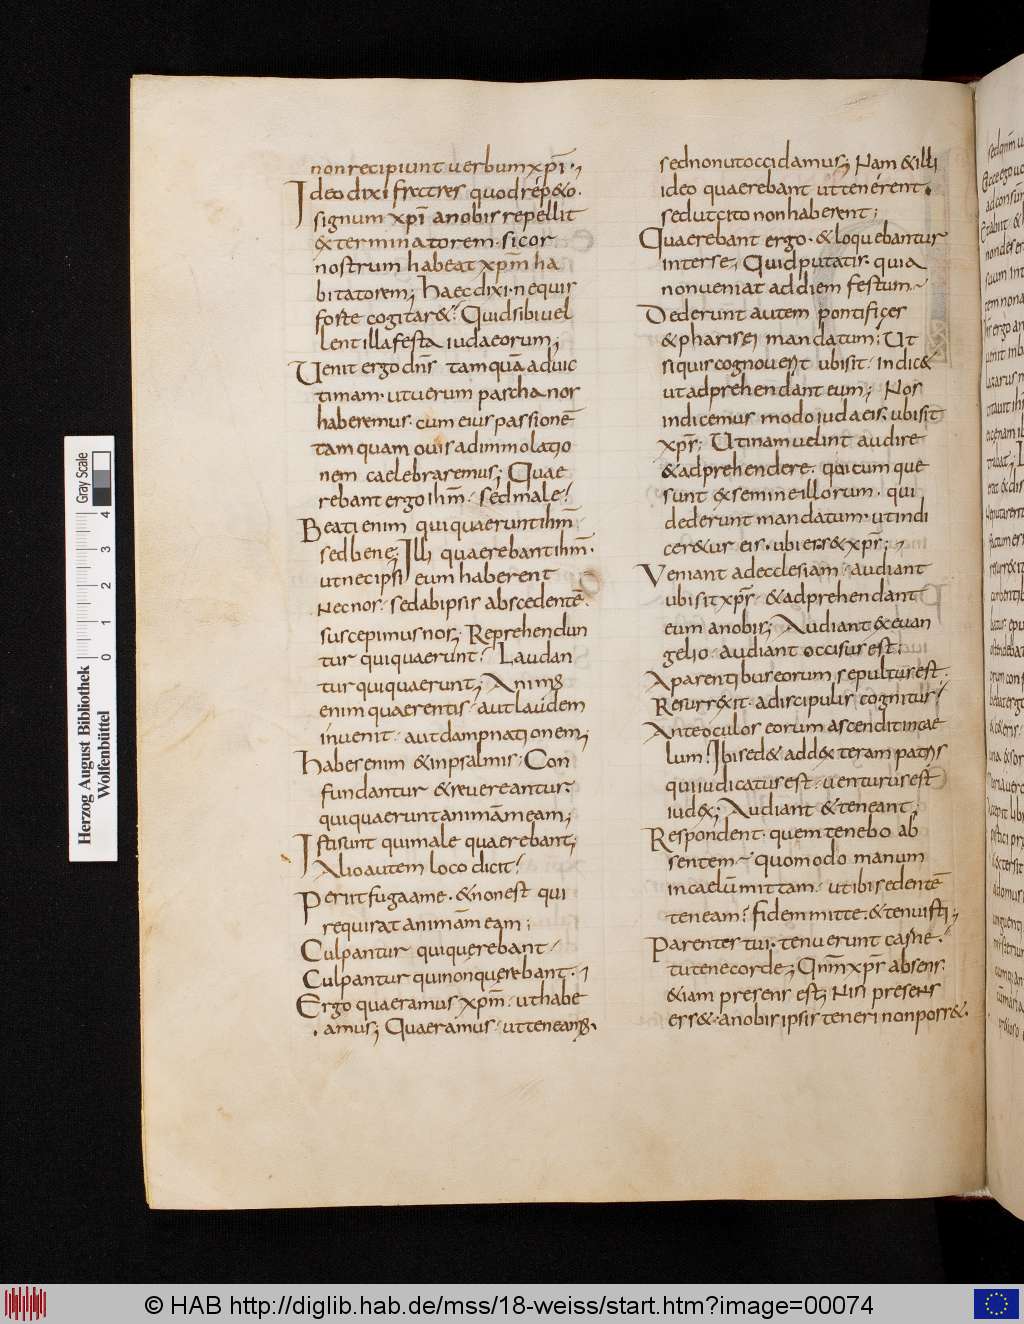 non recipiunt verbum xp̄i·,
Ideo dixi fratres quod rep&o·
signum xp̄i a nobis repellit
& terminatorem· si cor
nostrum habeat xp̄m ha
bitatorem; Haec dixi· nequis
forte cogitar&· Quid sibi vel
lent illa festa iudaeorum;
Venit ergo dn̄s tamquā ad vic
timam· ut verum pascha nos
haberemus· cum eius passionē
tamquam ovis ad immolatio
nem caelebraremus; Quae
rebant ergo ih̄m· sed male·
Beati enim qui quaerunt ih̄m·
sed bene; Illi quaerebant ih̄m·
ut nec ipsi eum haberent
nec nos· sed ab ipsis abscedentē·
suscepimus nos; Reprehendun
tur qui quaerunt· Laudan
tur qui quaerunt; Animus
enim quaerentis· aut laudem
invenit· aut dampnationem;
Habes enim & in psalmis· Con
fundantur & revereantur·
qui quaerunt animā meam;
Isti sunt qui male quaerebant;
Alio autem loco dicit·
Periit fuga a me· & non est qui
requirat animā meam;
Culpantur qui querebant·
Culpantur qui non querebant·,
Ergo quaeramus xp̄m· ut habe
amus; Quaeramus· ut teneamus·
sed non ut occidamus; Nam & illi
ideo quaerebant ut tenerent·
sed ut cito non haberent;
Quaerebant ergo· & loquebantur
inter se; Quid putatis· quia
non veniat ad diem festum·
Dederunt autem pontifices
& pharisei mandatum; Ut
si quis cognoverit ubi sit· indic&
ut adprehendant eum; Nos
indicemus modo iudaeis; ubi sit
xp̄s; Utinam velint audire
& adprehendere· qui cumque
sunt & semine illorum· qui
dederunt mandatum· ut indi
car&ur eis· ubi ess& xp̄s;,
Veniant ad ecclesiam· audiant
ubi sit xp̄s· & adprehendant
eum a nobis; Audiant & evan
gelio· audiant occisus est;
A parentibus eorum sepultus est·
Resurr&xit· a discipulis cognitus·
Ante oculos eorum ascendit in cae
lum· Ibi sed& ad d&teram patris
qui iudicatus est· venturus est
iud&; Audiant & teneant;
Respondent· quem tenebo ab
sentem· quomodo manum
in caelū mittam· ut ibi sedentē
teneam· fidem mitte· & tenuisti;
Parentes tui· tenuerunt carne·
tu tene corde; Qn̄m xp̄s absens
& iam presens est; Nisi presens
ess&· a nobis ipsis teneri non poss&·
Herzog August Bibliothek
Wolfenbüttel
0 1 2 3 4
Gray Scale
© HAB http://diglib.hab.de/mss/18-weiss/start.htm?image=00074